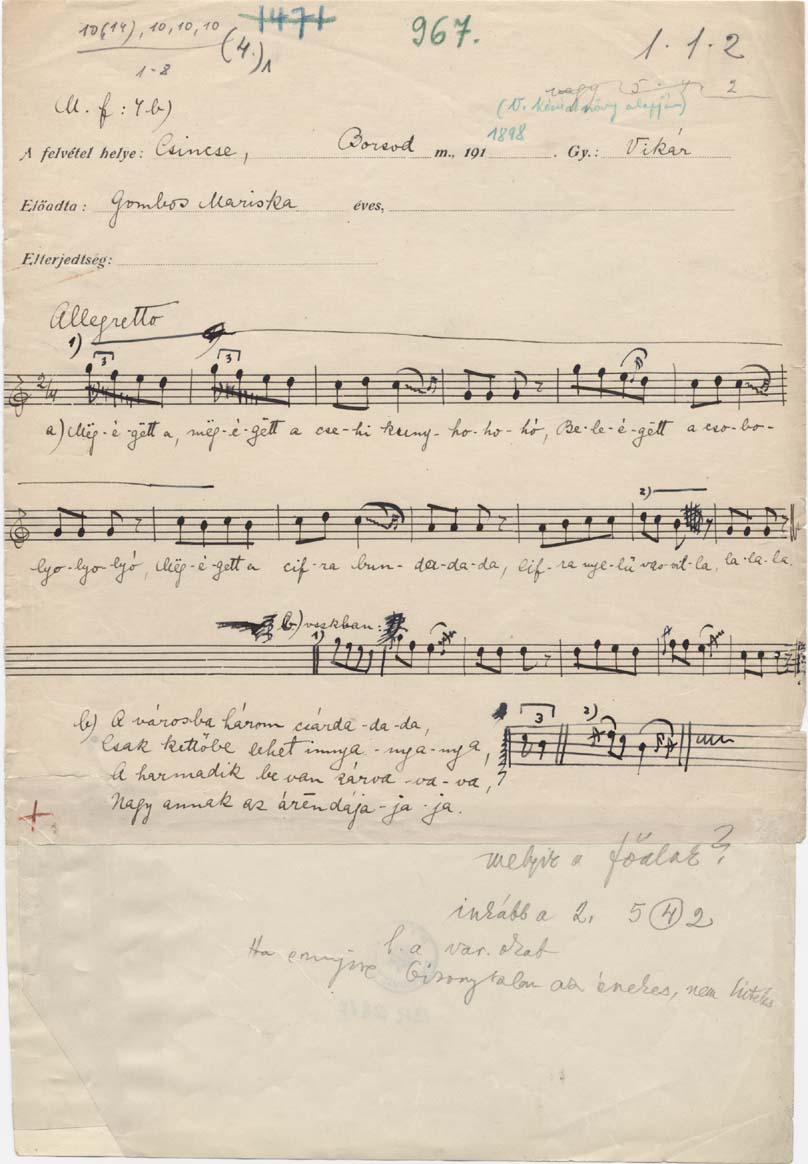 10(14), 10, 10, 10
1-8
(4.)1
1471
967.
1. 1. 2
vagy 5 4 2
M. f: 4b)
(V. alapján)
1898
A felvétel helye: Csincse, Borsod m., 191 . Gy.: Vikár
Előadta: Gombos Mariska éves,
Elterjedtség:
Allegretto
1)
3 3
2/4
a) Mëg-é-gëtt a, mëg-é-gëtt a cse-hi kuny-ho-ho-hó, Be-le-é-gëtt a cso-bo-
2)
lyo-lyo-lyó, Mëg-é-gett a cif-ra bun-da-da-da, Cif-ra nye-lű vas-vil-la, la-la-la.
b) vszkban:
1)
b) A városba három csárda-da-da,
Csak kettőbe lehet innya-nya-nya,
A harmadik be van zárva-va-va,
Nagy annak az árëndája-ja-ja.
3 2)
melyik a főalak?
inkább a 2. 5 4 2
l. a var. okat
Ha ennyire bizonytalan az énekes, nem hiteles